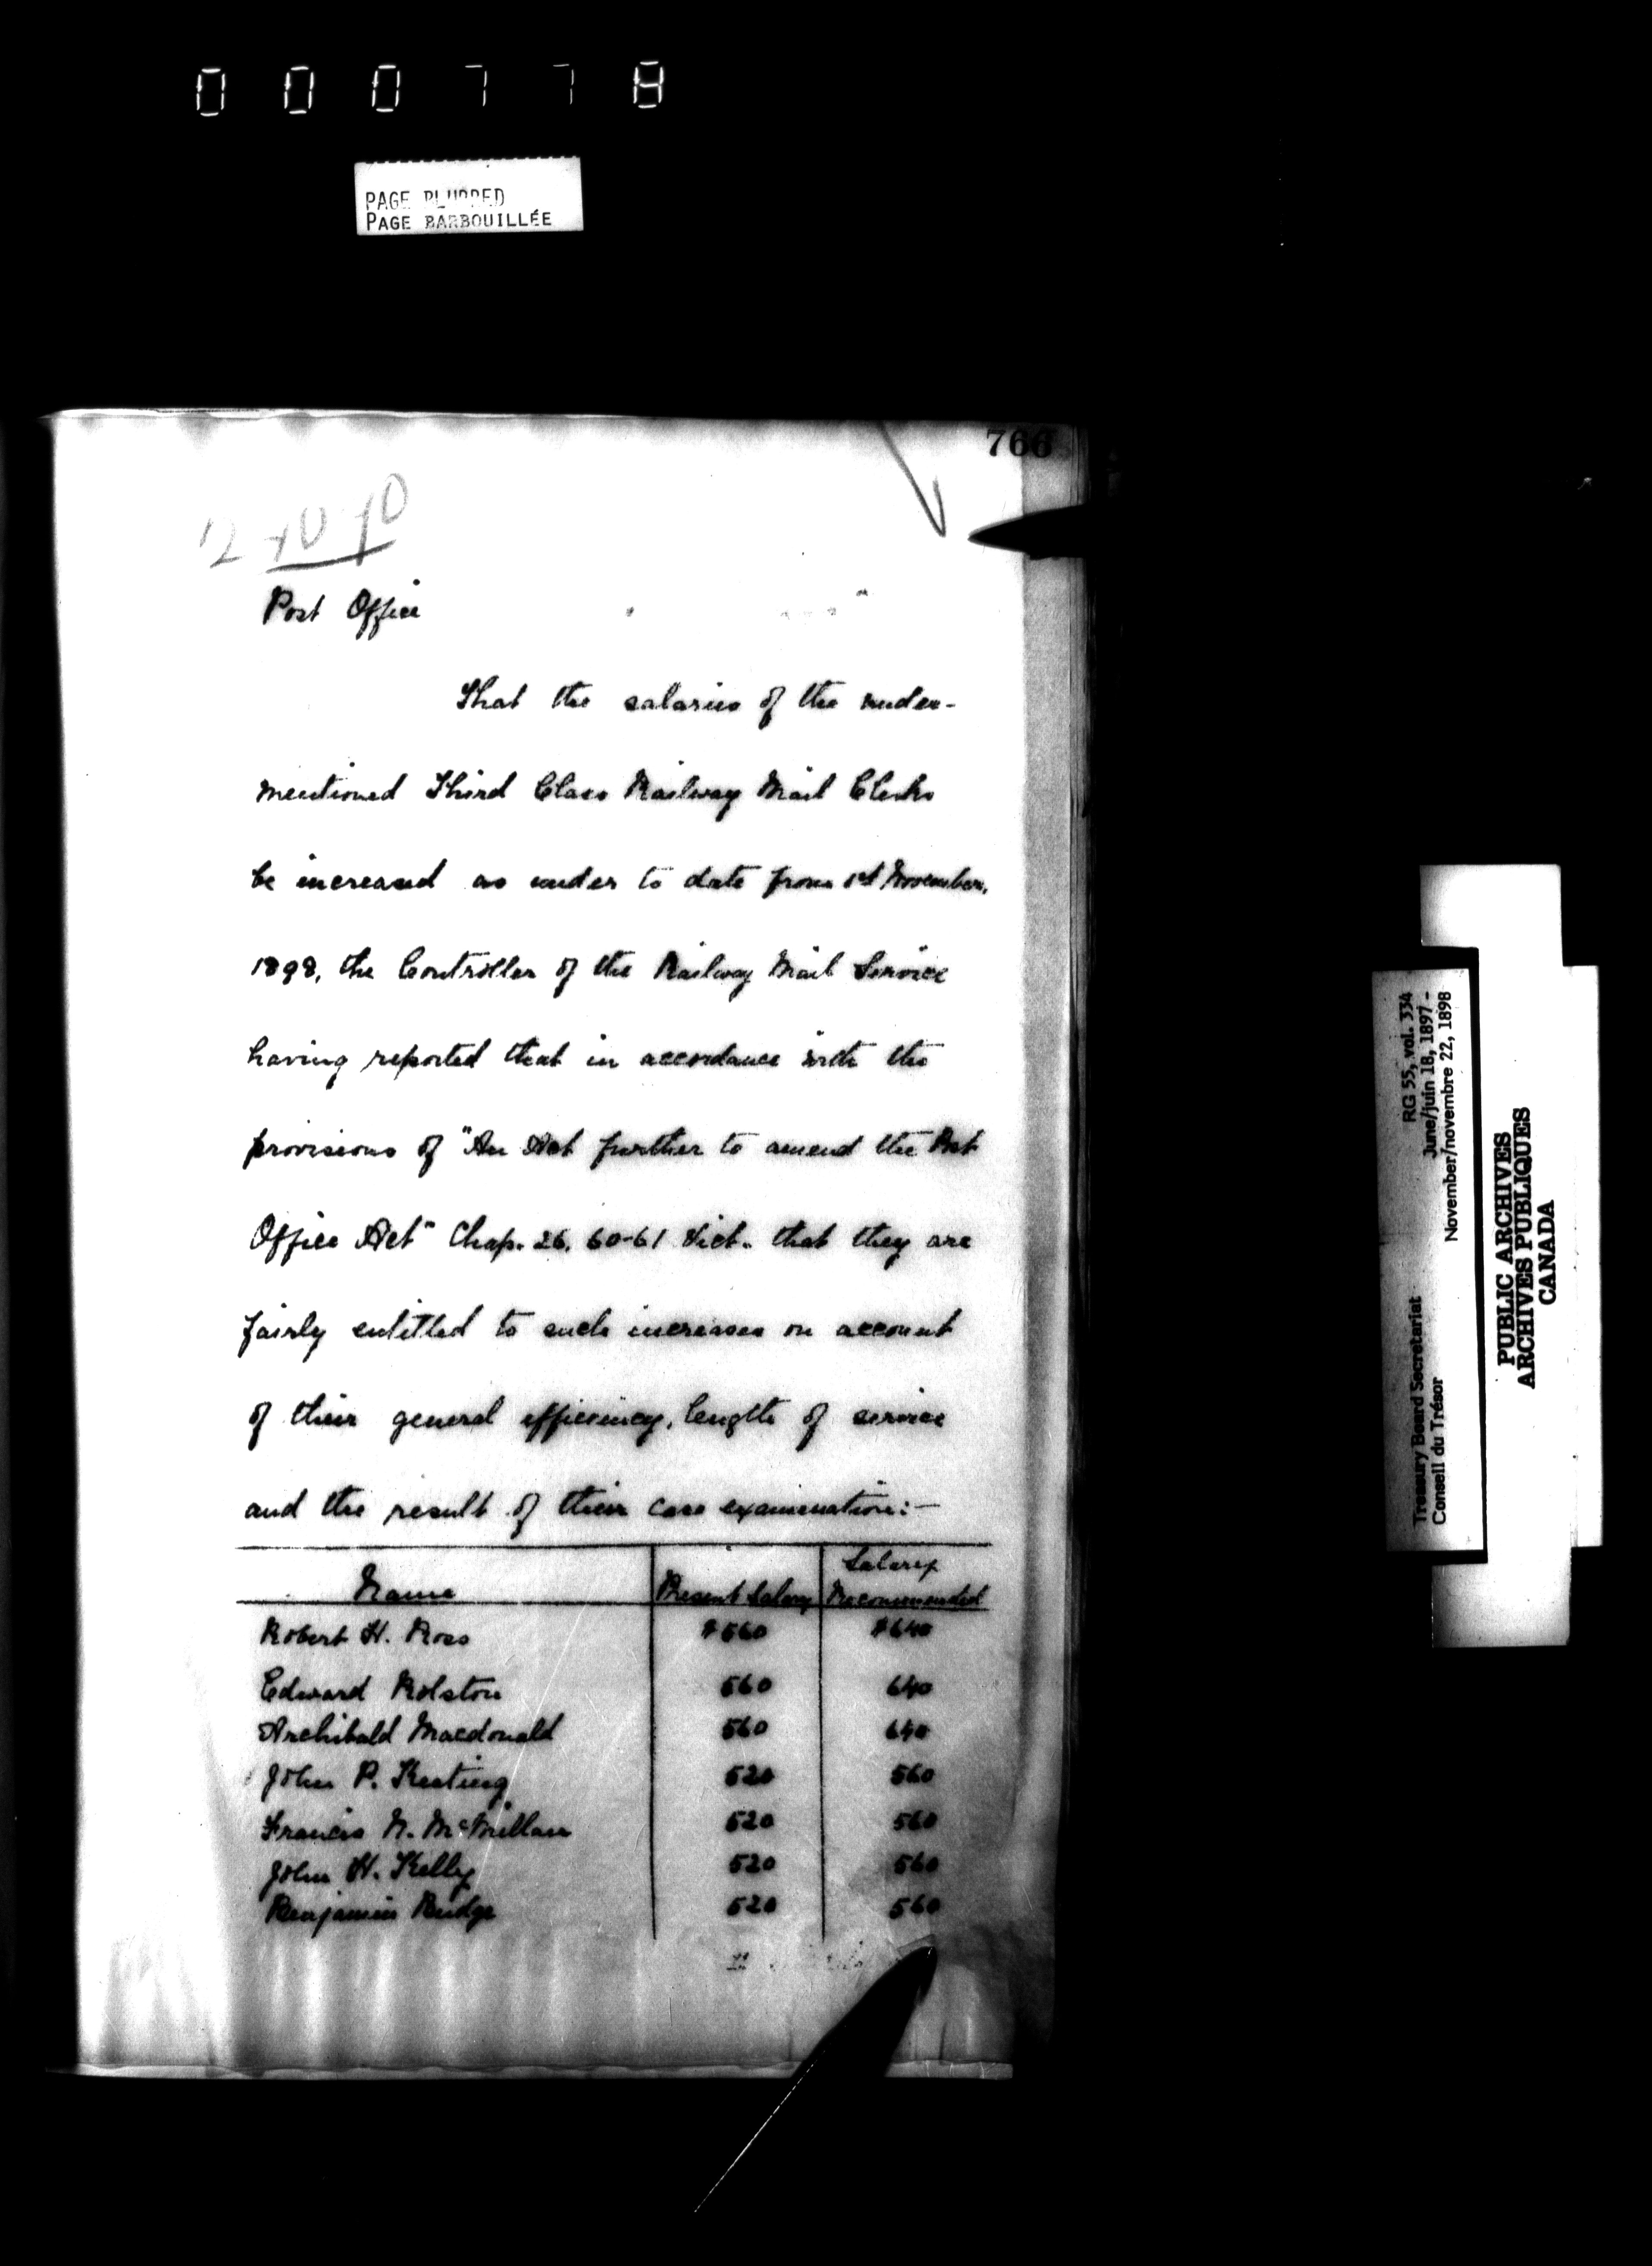 000778
PAGE BLURRED
PAGE BARBOUILLÉE
766
Post Office
That the salaries of the under-
mentioned Third Class Railway Mail Clerks
be increased as under to date from 1st November,
1898, the Controller of the Railway Mail Service
having reported that in accordance with the
provisions of "An Act further to amend the Post
Office Act" Chap. 26. 60-61 Vict. that they are
fairly entitled to such increases on account
of their general efficiency, length of service
and the result of their case examination:—
Name Present Salary Salary Recommended
Robert H. Ross $560 $640
Edward Rolston 560 640
Archibald Macdonald 560 640
John P. Keating 520 560
Francis N. McMillan 520 560
John H. Kelly 520 560
Benjamin Budge 520 560
Treasury Board Secretariat RG 55, vol. 334
Conseil du Trésor June/juin 18, 1897 -
November/novembre 22, 1898
PUBLIC ARCHIVES
ARCHIVES PUBLIQUES
CANADA